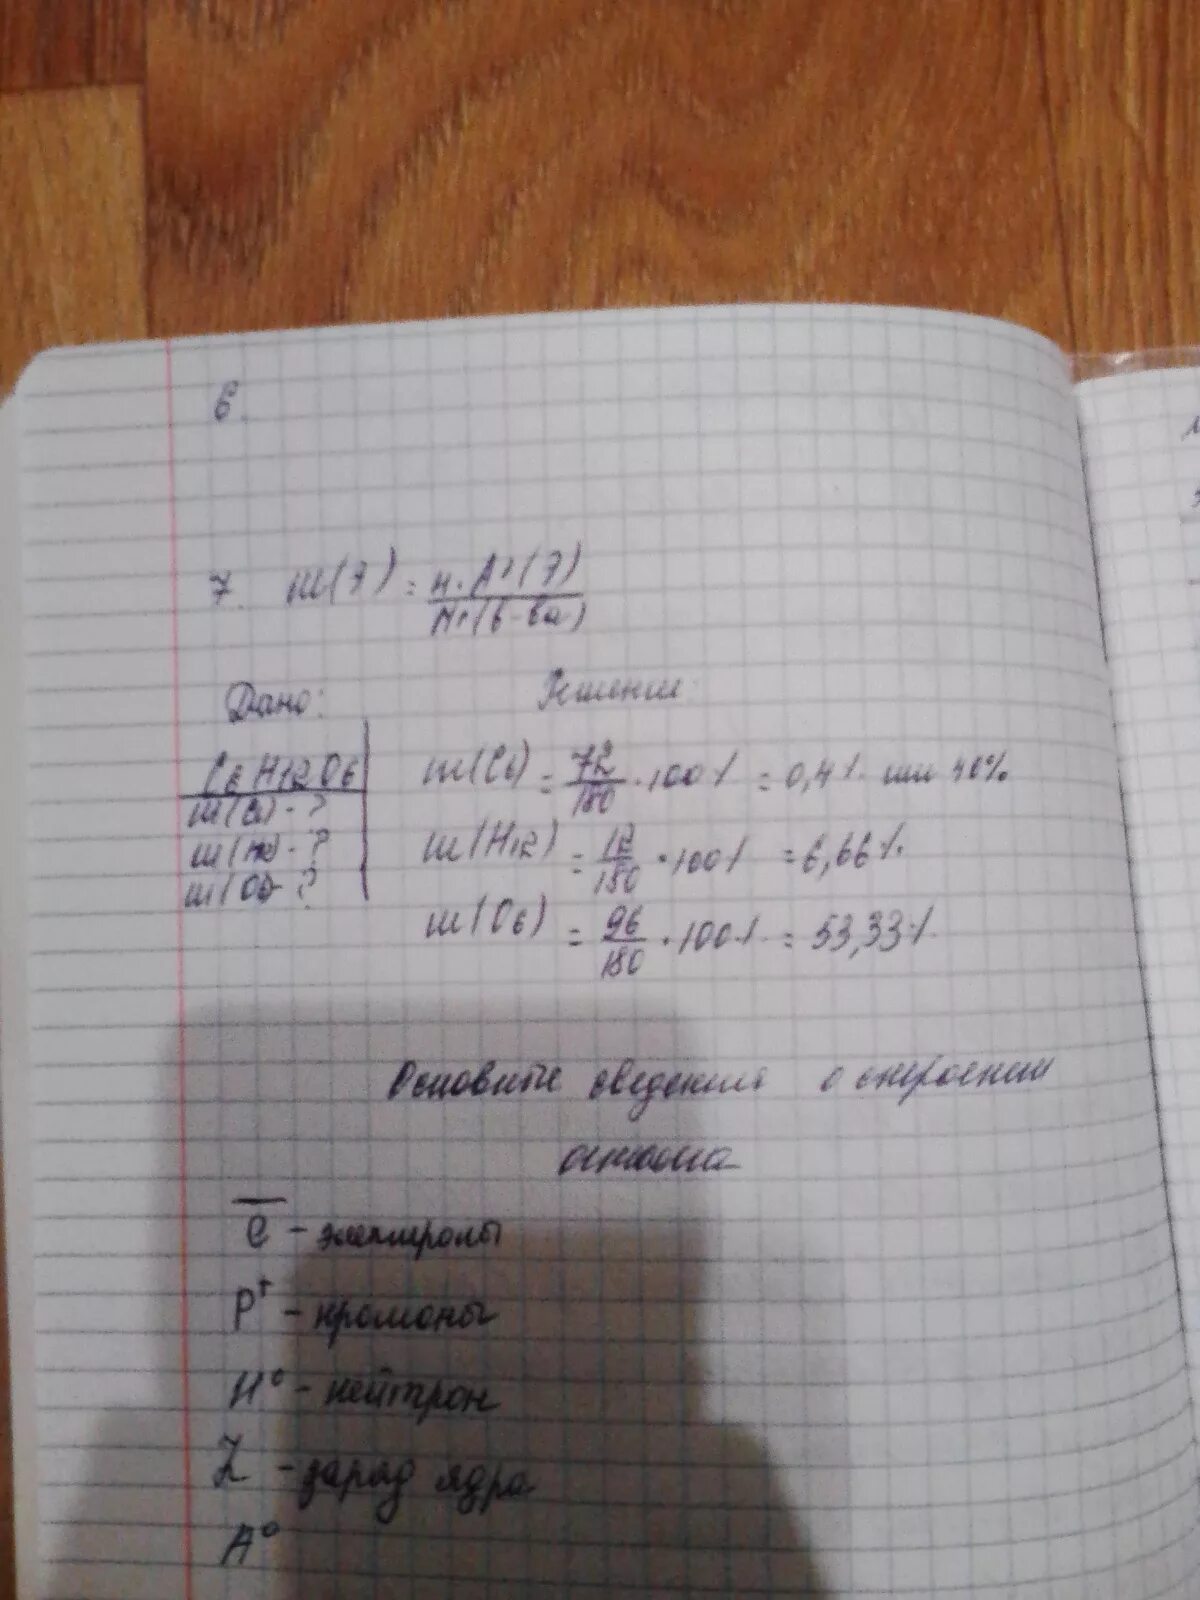 6.
7. m(Э) = н · Аr(Э) / Mr(в-ва)
Дано:
C6H12O6
m(C6) - ?
m(H12) - ?
m(O6) - ?
Решение:
m(C6) = 72/180 · 100% = 0,4% или 40%
m(H12) = 12/180 · 100% = 6,66%.
m(O6) = 96/180 · 100% = 53,33%
сведения о строении
атома
e̅ - электроны
P⁺ - протоны
H⁰ - нейтрон
Z - заряд ядра
A⁰